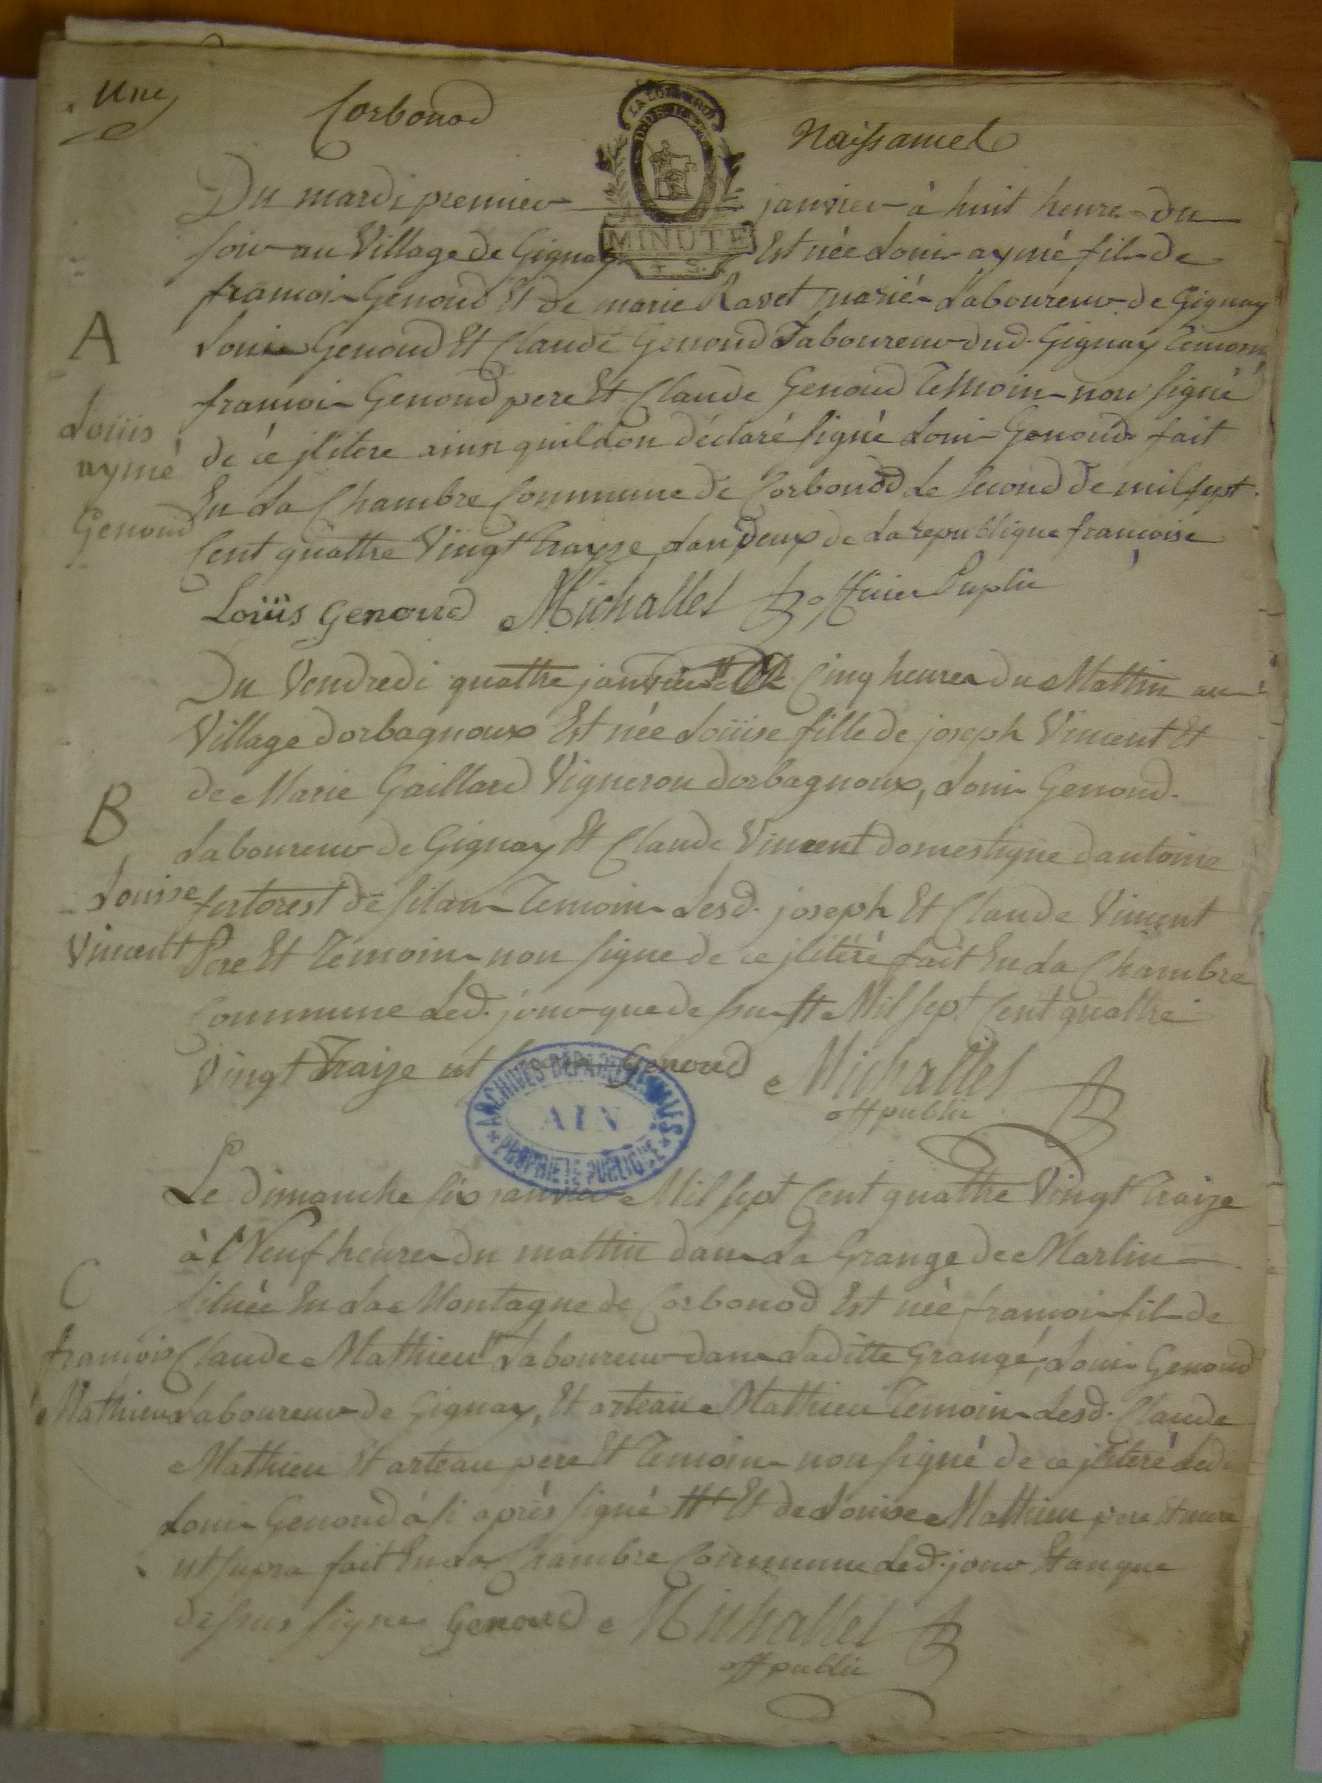 Une
Corbonod
Naissances
LA LOI ET LE ROI
MINUTE
Du mardi premier janvier à huit heures du
soir au Village de Gignay Est née Louis aymé fils de
francois Genoud Et de marie Ravet mariés Laboureur de Gignay
Louis Genoud Et Claude Genoud Laboureur dud. Gignay Temoins
francois Genoud pere Et Claude Genoud Temoin non signé
de cé jlitere ainsi quil don déclaré signé Louis Genoud fait
En La Chambre Commune de Corbonod Le second de mil sept
Cent quattre Vingt Trayze Lan deux de La republique francoise
Loüis Genoud Michallet officier Puplic
A
Loüis
aymé
Genoud
Du Vendredi quattre janvier Cinq heures du Mattin au
Village dorbagnoux Est née Loüise fille de joseph Vincent Et
de Marie Gaillard Vigneron dorbagnoux, Louis Genoud
Laboureur de Gignay Et Claude Vincent domestique dantoine
de silan Temoins Lesd. joseph Et Claude Vincent
Pere Et Temoins non signe de ce jlitéré fait En La Chambre
Commune Led. jour que de sus Mil sept Cent quattre
Vingt Traize ut Genoud Michallet
off public
B
Louise
Vincent
ARCHIVES DÉPARTEMENTALES
AIN
PROPRIÉTÉ PUBLIQUE
Le dimanche six janvier Mil sept Cent quattre Vingt Traize
à Neuf heures du mattin dans La Grange de Marlin
située En La Montagne de Corbonod Est née francois fils de
Claude Mathieu Laboureur dans Laditte Grange, Louis Genoud
Laboureur de Gignay, Et arteau Mathieu Temoins Lesd. Claude
Mathieu Et arteau pere Et Temoins non signé de ce jlitéré Led
Louis Genoud à si après signé Et de Louise Mathieu pere Et mere
ut supra fait En La Chambre Commune Led. jour Et an que
dessus signe Genoud Michallet
off public
C
francois
Mathieu